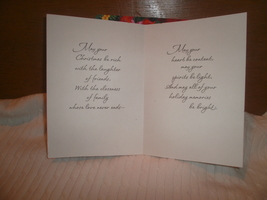 May your
Christmas be rich
with the laughter
of friends,
With the closeness
of family
whose love never ends~
May your
heart be content,
may your
spirits be light,
And may all of your
holiday memories
be bright.